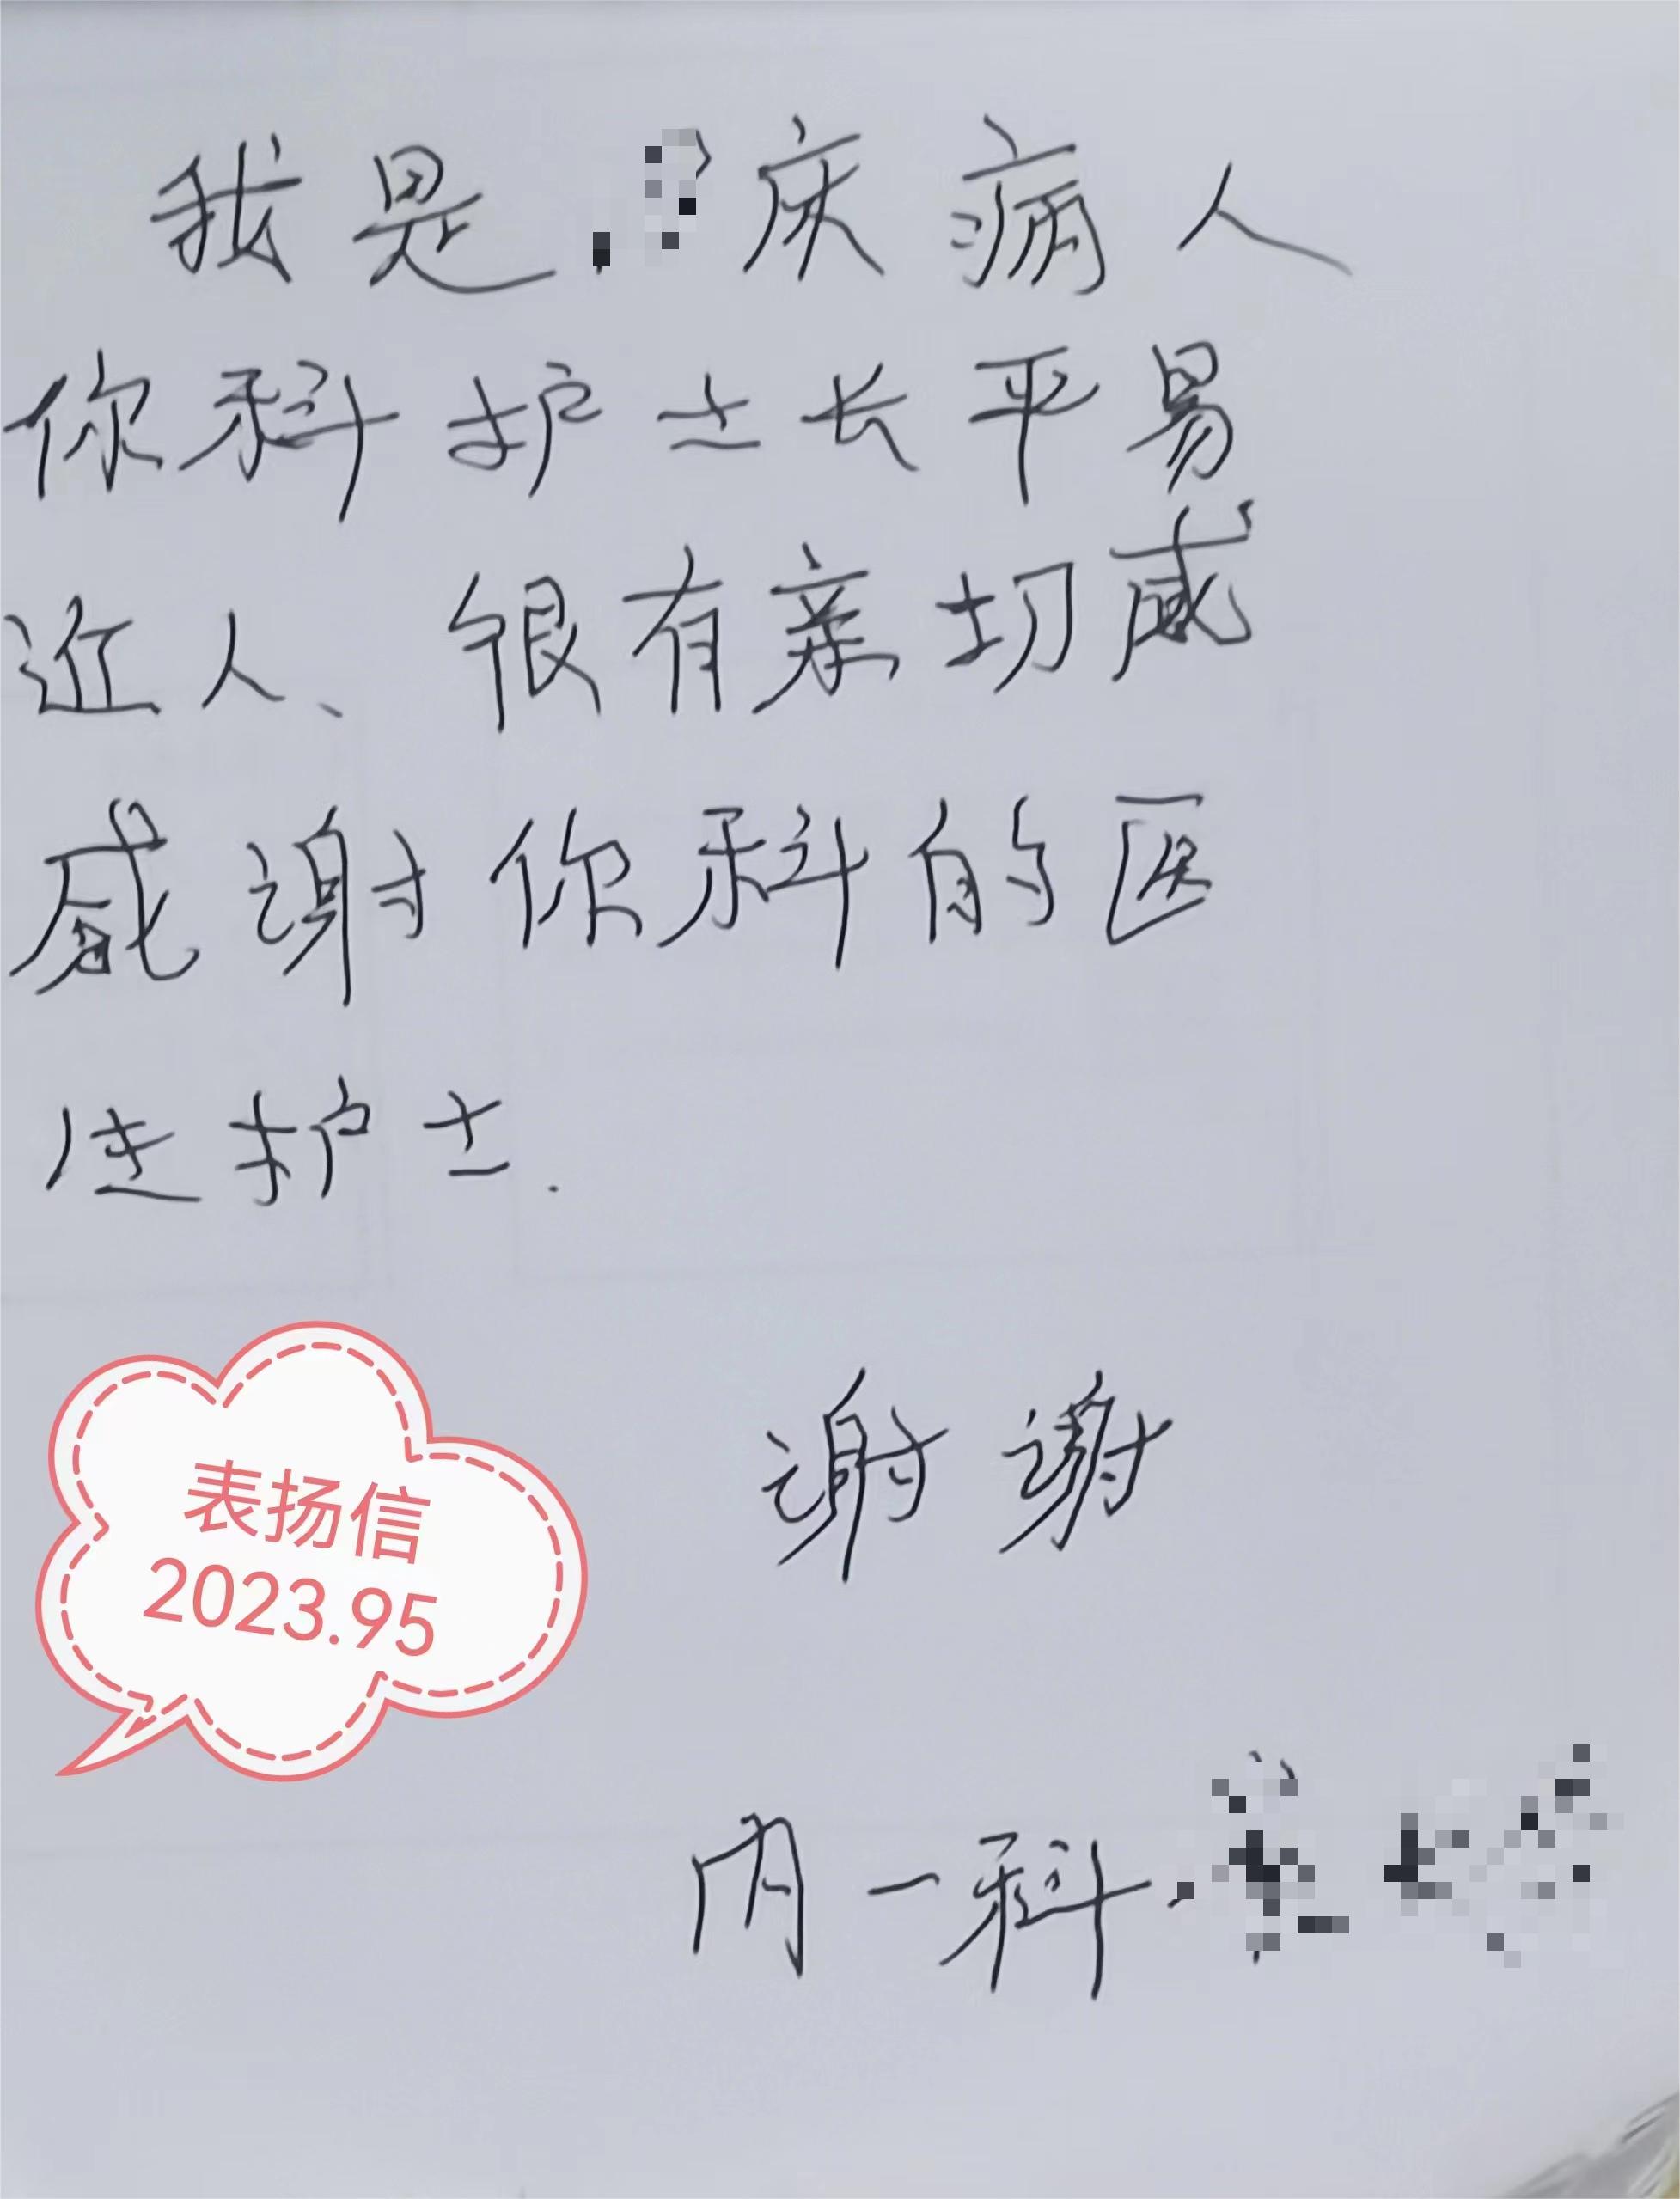 我是 床病人
你科护士长平易
近人、很有亲切感
感谢你科的医
生护士.
谢谢
表扬信
2023.95
内一科